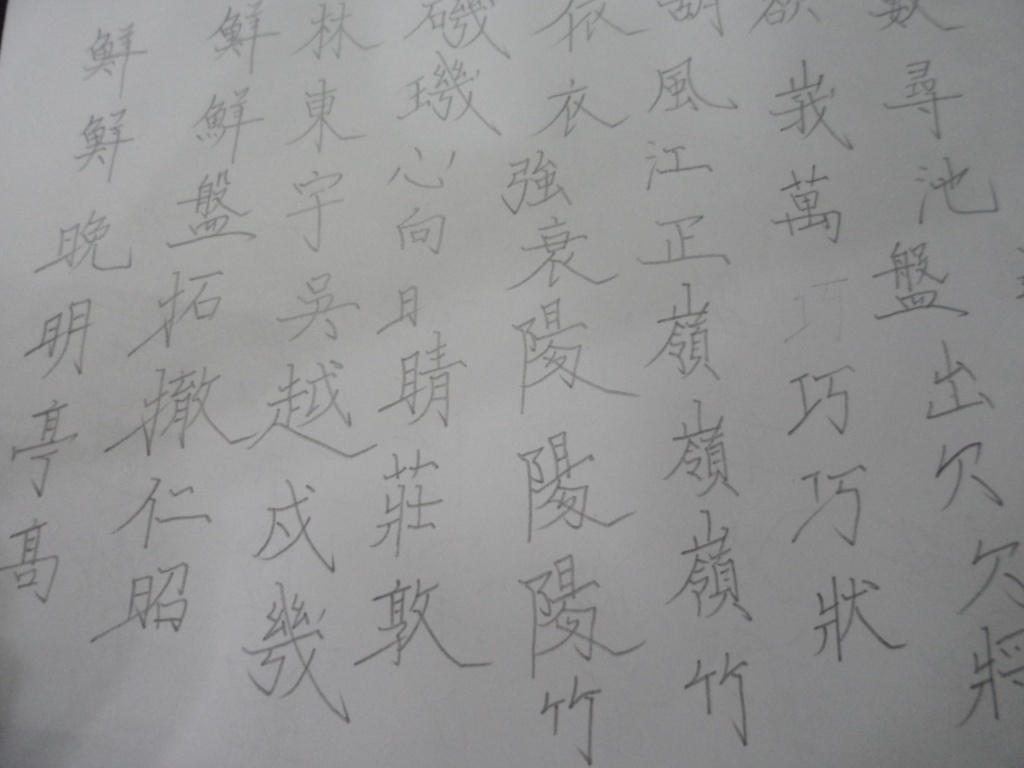 數尋池盤出欠欠將
欲峩萬巧巧巧狀
胡風江正嶺嶺嶺竹
依衣強衰陽陽陽竹
磯璣心向日晴莊敦
林東宇吳越戍幾
鮮鮮盤拓撤仁昭
鮮鮮晚明亭高